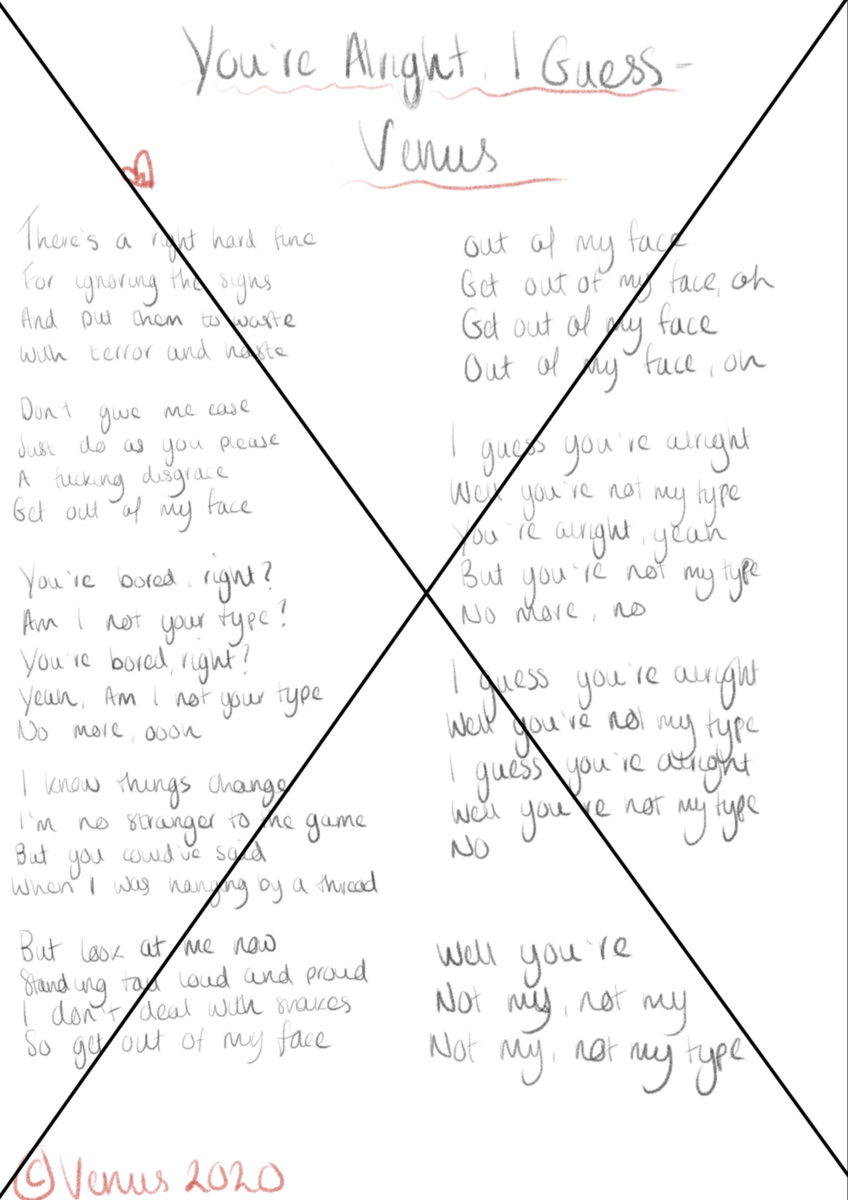 You're Alright, I Guess -
Venus
There's a right hard fine
For ignoring the signs
And put them to waste
With terror and haste
Don't give me ease
Just do as you please
A fucking disgrace
Get out of my face
You're bored, right?
Am I not your type?
You're bored, right?
Yeah, Am I not your type
No more, oooh
I know things change
I'm no stranger to the game
But you could've said
When I was hanging by a thread
But look at me now
Standing tall loud and proud
I don't deal with snakes
So get out of my face
Out of my face
Get out of my face, oh
Get out of my face
Out of my face, oh
I guess you're alright
Well you're not my type
You're alright, yeah
But you're not my type
No more, no
I guess you're alright
Well you're not my type
I guess you're alright
Well you're not my type
No
Well you're
Not my, not my
Not my, not my type
© Venus 2020